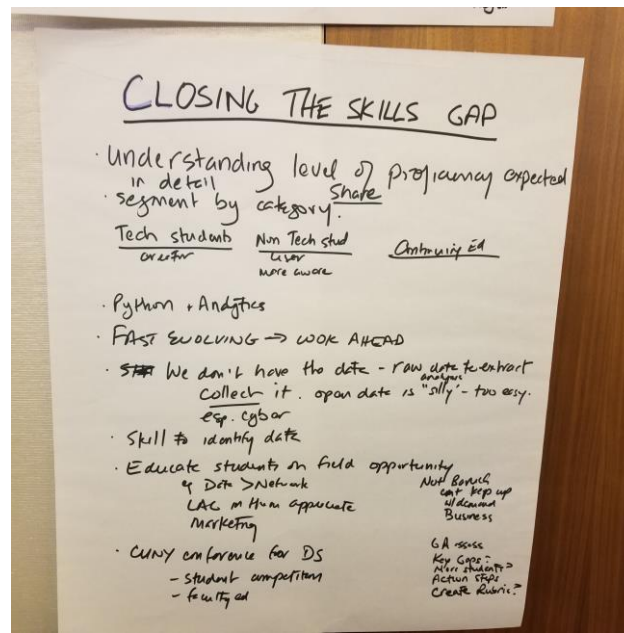 CLOSING THE SKILLS GAP
· Understanding level of proficiency expected
in detail
Share
· segment by category.
Tech students Non Tech stud Continuing Ed
creator user
more aware
· Python + Analytics
· FAST EVOLVING → LOOK AHEAD
· We don't have the data - raw data to extract
analysis
collect it. open data is "silly" - too easy.
esp. cyber
· Skill to identify data
· Educate students on field opportunity
eg Data > Network
LAC in Hum appreciate
Marketing
Not Baruch
can't keep up
w/demand
Business
· CUNY conference for DS
- student competition
- faculty ed
GA assess
Key Gaps:
More students?
Action Steps
Create Rubric?